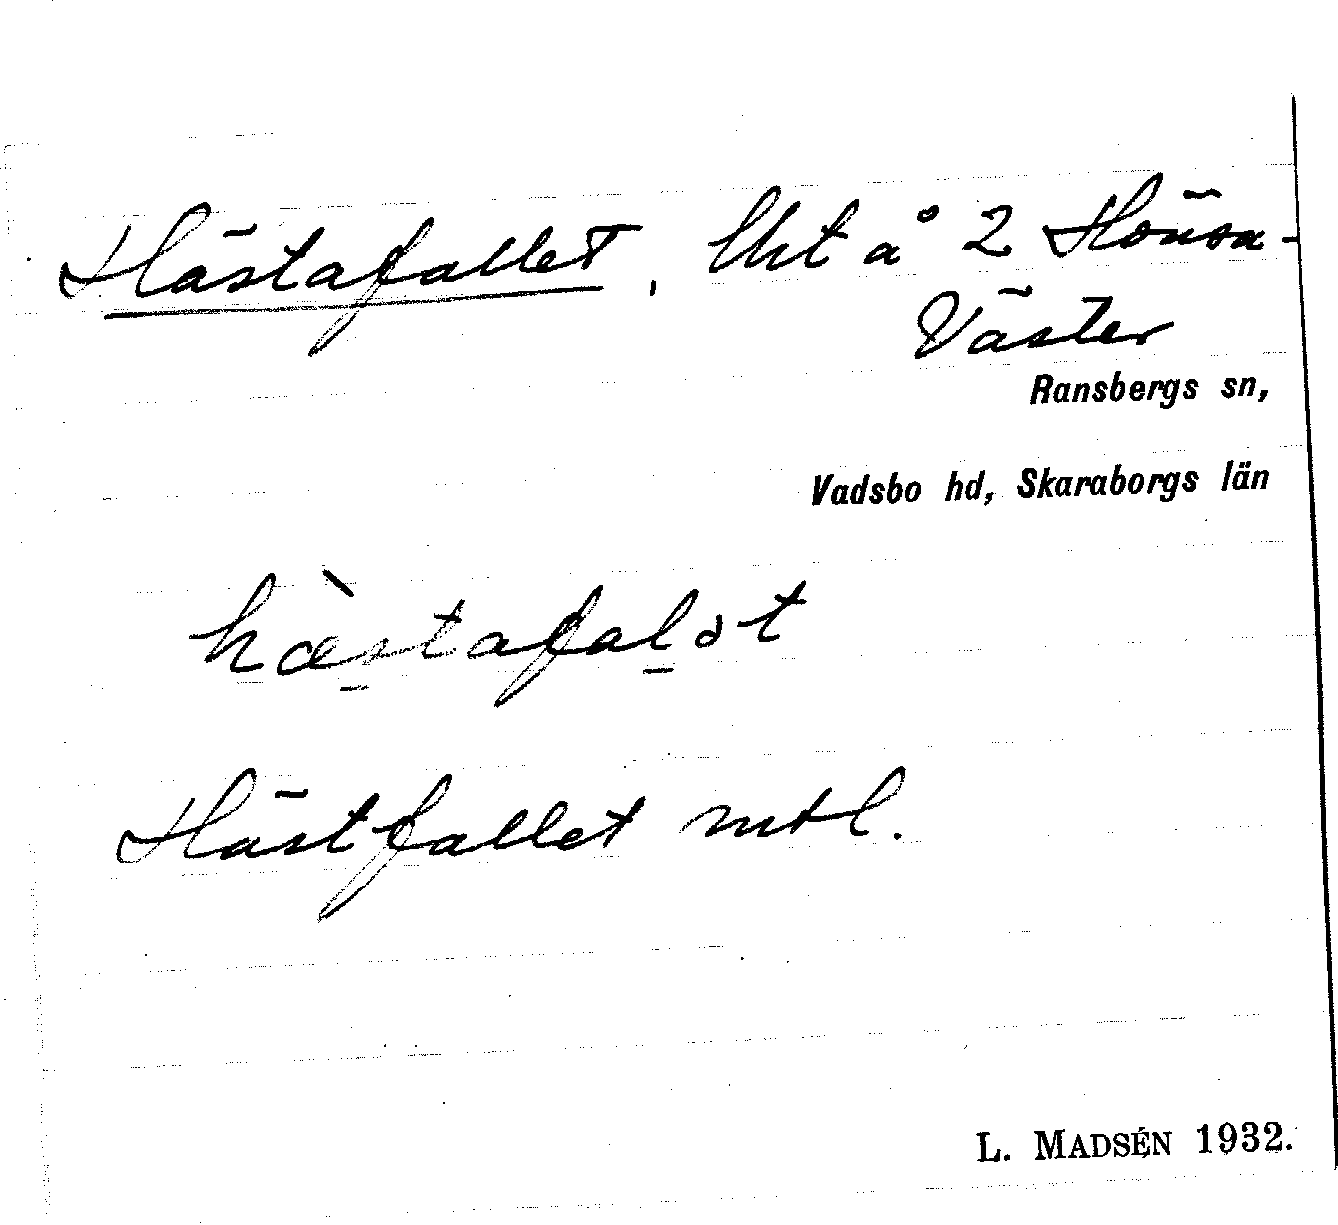 Hästafallet, lht å 2 Hönsa-
Väster
Ransbergs sn,
Vadsbo hd, Skaraborgs län
hæ̀stafalət
Hästfallet mtl.
L. MADSÉN 1932.